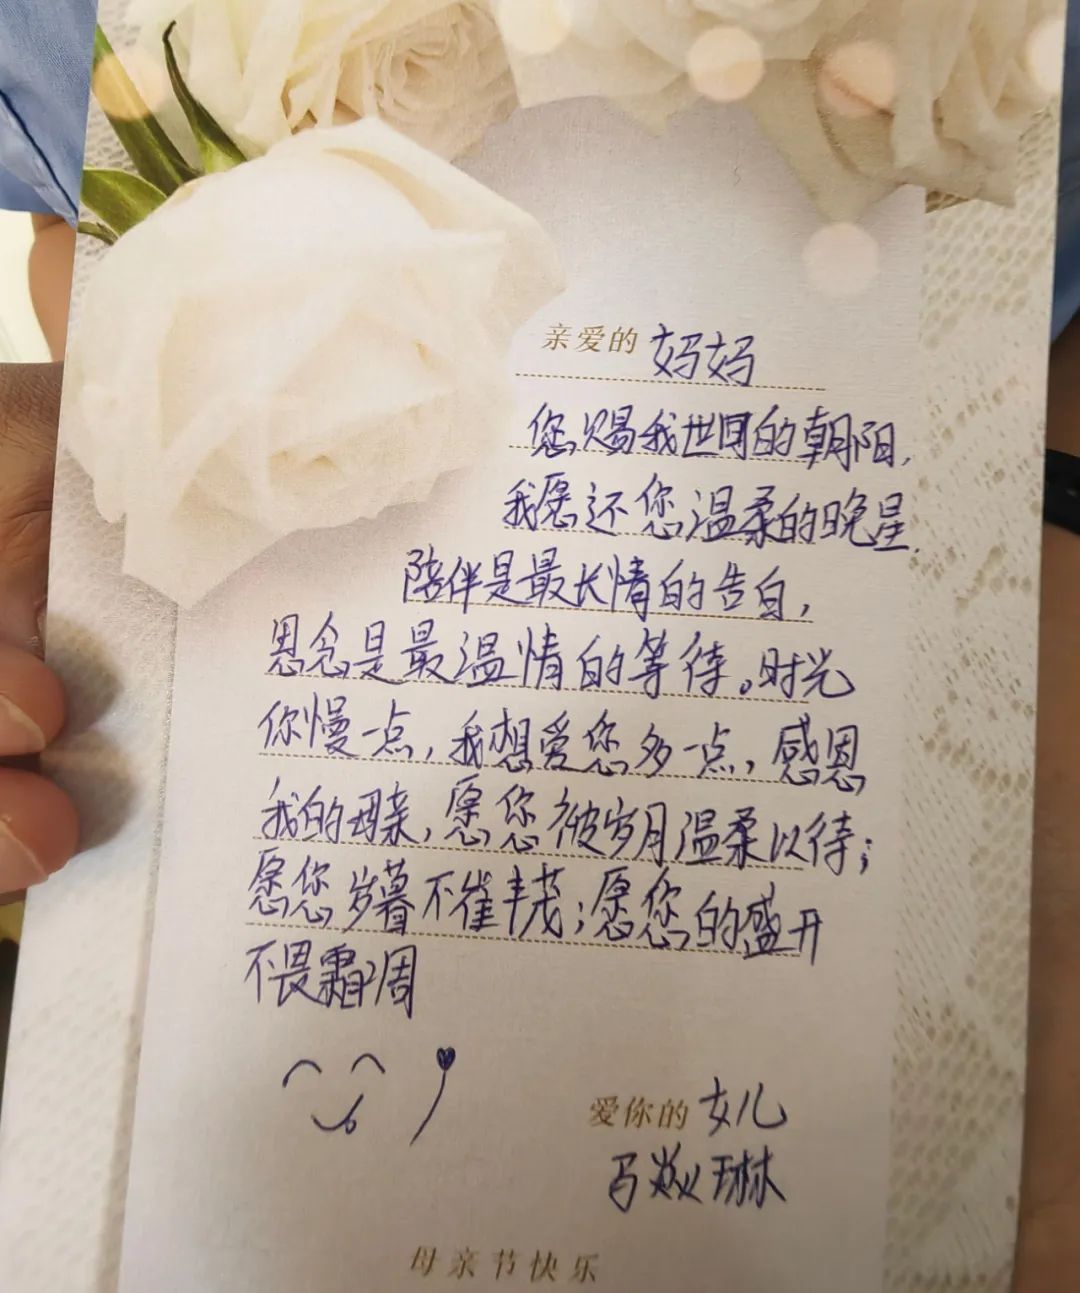 亲爱的 妈妈
您赐我世间的朝阳,
我愿还您温柔的晚星.
陪伴是最长情的告白,
思念是最温情的等待。时光
你慢一点,我想爱您多一点,感恩
我的母亲,愿您被岁月温柔以待;
愿您岁暮不催丰茂;愿您的盛开
不畏霜凋
爱你的 女儿
马燚琳
母亲节快乐